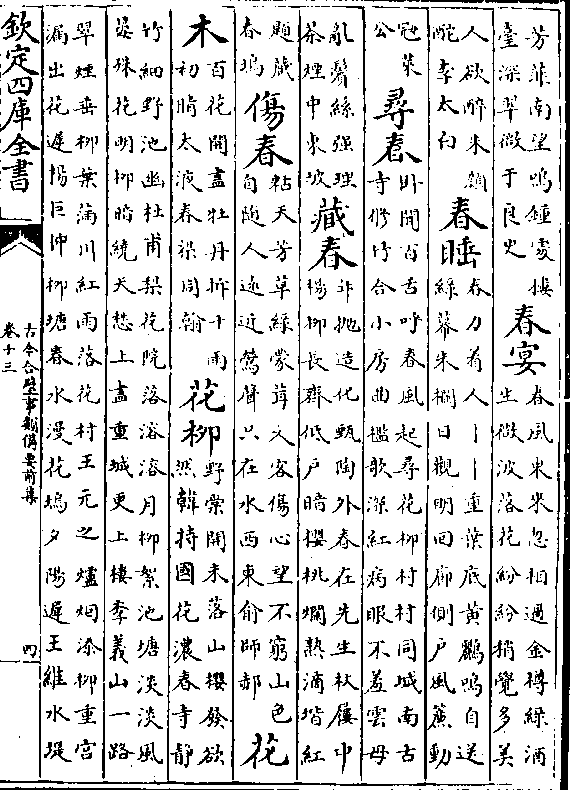 芳菲南望嗚鍾處樓
臺深翠微于良史
春宴
春風東来忽相過金樽緑酒
生微波落花紛紛稍覺多美
人欲醉朱顔
酡李太白
春睡
春力着人〡〡重葉底黃鸝鳴自送
緑幕朱欄日觀明回廊側戶風簾動
冦萊
公
尋春
卧聞百舌呼春風起尋花柳村村同城南古
寺修竹合小房曲檻歌深紅病眼不羞雲母
亂鬢絲强理
茶煙中東坡
藏春
非抛造化甄陶外春在先生杖屨中
楊柳長齊低戶暗櫻桃爛熟滴堦紅
題藏
春塢
傷春
粘天芳草緑蒙茸久客傷心望不窮山色
自随人逺近鶯聲只在水西東俞師郝
花
木
百花開盡牡丹拆十雨
初晴太液春梁周翰
花柳
野棠開未落山櫻發欲
然韓持國花濃春寺静
竹細野池幽杜甫梨花院落溶溶月柳絮池塘淡淡風
晏殊花明柳暗繞天愁上盡重城更上樓李義山一路
翠煙垂柳葉滿川紅雨落花村王元之爐烟添柳重宫
漏出花遲楊巨仲柳塘春水漫花塢夕陽遲王維水堤
欽定四庫全書
古今合璧事類備要前集
卷十三
四